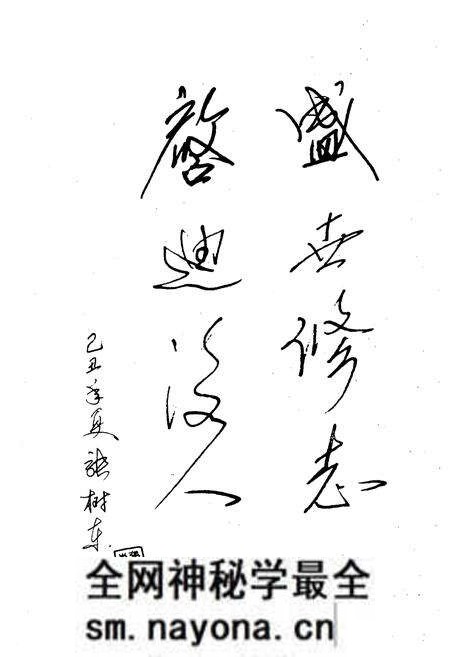 盛世修志
啓迪後人
己丑年夏 张树东
全网神秘学最全
sm.nayona.cn